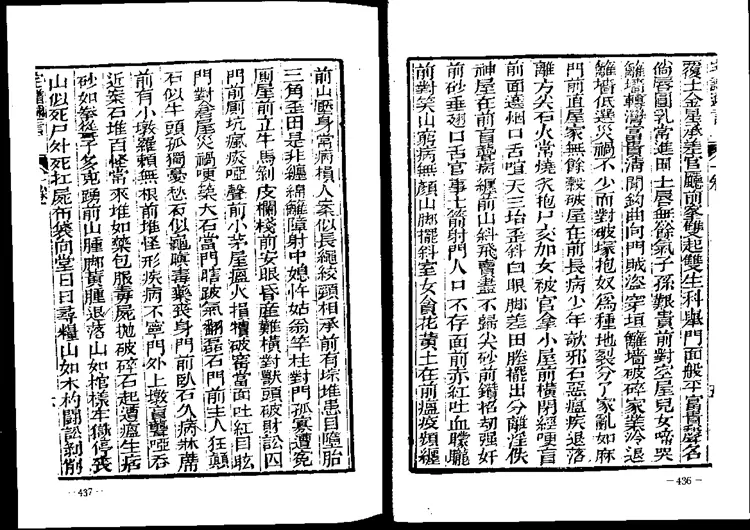 覆土金星承差官廳前家雙起雙生科舉門面般平富貴聲名
倘唇圓乳常進田土唇無餘氣子孫艱貴前對空屋兒女啼哭
籬墻轉灣富貴清閒鈎曲向門賊盜穿垣籬墻破碎家業冷退
籬墻低逃災禍不少而對破塚抱奴為種地裂分了家亂如麻
門前直屋家無餘穀破屋在前長病少年欹邪石惡瘟疾退落
離方尖石火常燒衣抱尸交加女被官拿小屋前橫閉經哽盲
前面遠烟口舌喧天三抬歪斜白眼脚差田塍擺出分離淫佚
神屋在前盲聾病纏前山斜飛賣盡不歸尖砂前鑽招刼强奸
前砂垂翅口舌官事土箭射門人口不存面前赤紅吐血朦朧
前對笑山窮病無顏山脚擺斜室女貪花黃土在前瘟疫頻纏
－436－
前山壓身常病損人案似長繩絞頸相承前有琮堆患目墮胎
三角歪田是非纏綿籬障射中媳忤姑翁竿柱對門孤寡遭冤
厠屋前立牛馬剝皮欄棧前安眼昏產難橫對獸頭破財訟四
門前厠坑瘋痰啞聲前小茅屋瘟火指犢破窰當面吐紅目眩
門對倉屋災禍哽築大石當門瞎跛氣翻磊石門前主人狂顛
石似牛頭孤獨憂愁石似龜嗔毒藥喪身門前臥石久病牀席
前有小墩羅賴無根前堆怪形疾病不寧門外上墩盲聾啞吞
近案石堆百怪常來堆如藥包服毒屍拋破碎石起遭瘟生疥
砂如拳從子多克踴前山腫脚黃腫退落山如棺樣牢獄停喪
山似死尸外死扛屍布袋向堂日日尋糧山如木杓鬪訟剥削
437